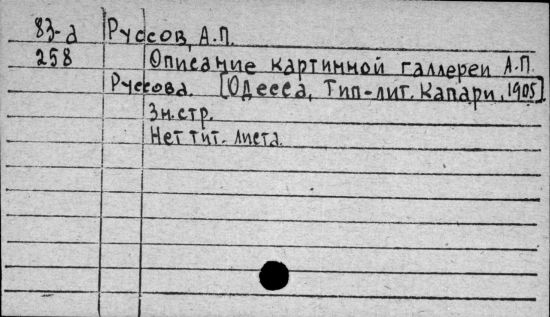 83-2 Руссов, А.П.
258 Описание картинной галлереи А.П.
Руссова. [Одесса, Тип-лит. Капари, 1905].
3н.стр.
Нет тит. листа.